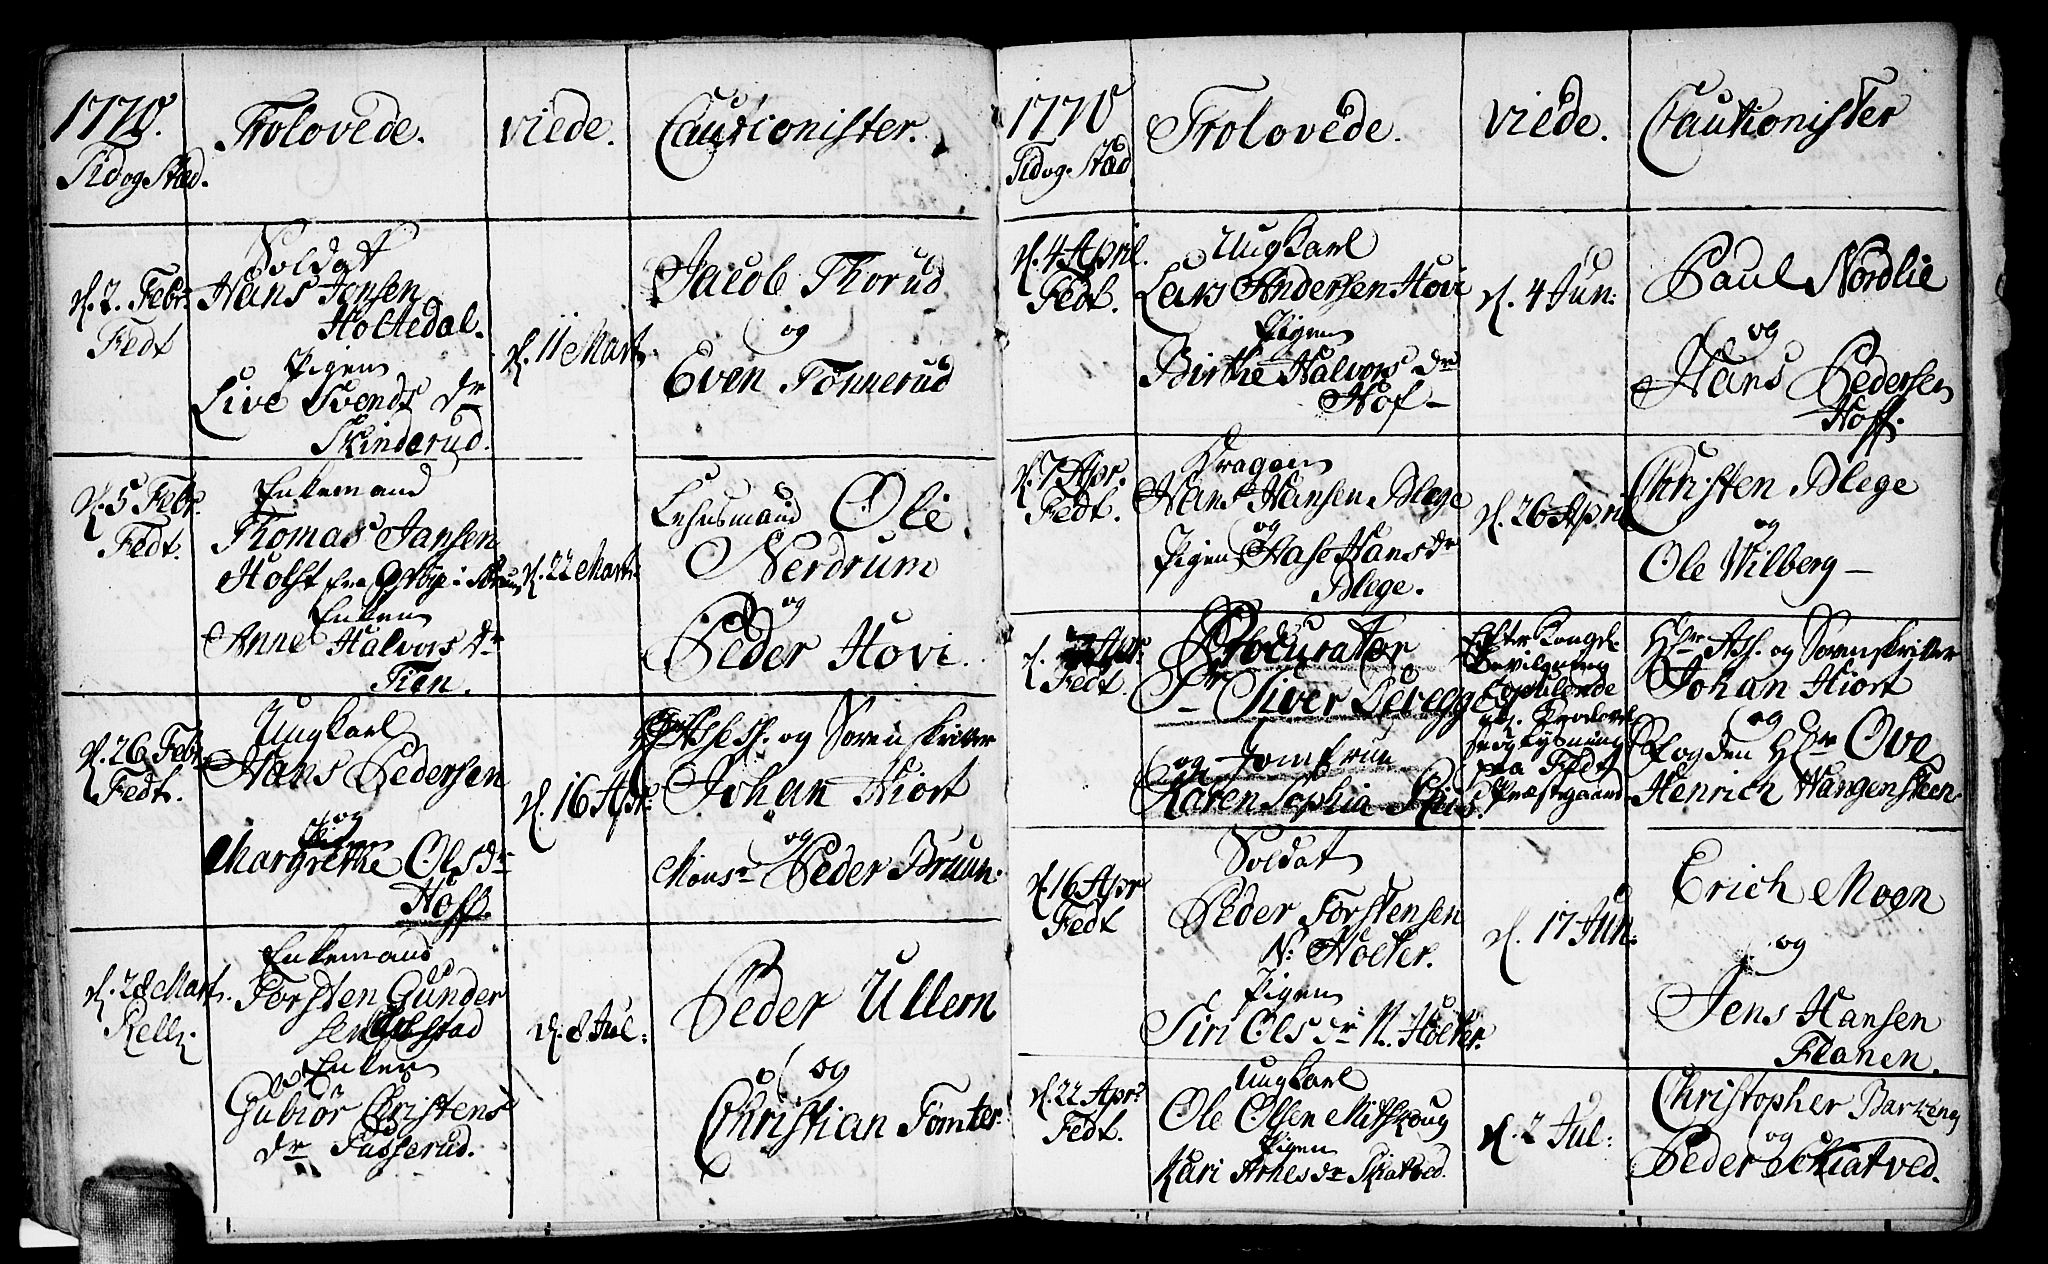 1770.
Tid og Stæd.
Trolovede.
viede.
Cautionister.
d. 7. Febr:
Fedt
Soldat
Hans Jensen
Holtedal.
Pigen
Live Svends dr
Skinderud.
d. 11 Mart:
Jacob Thorud
og
Even Tonnerud
d. 5 Febr.
Fedt.
Enkemand
Thomas Jansen
Holst fra i
Enken
Anne Halvors dr
d. 22 Mart:
Lehnsmand Ole
Nerdrum
og
Peder Hovi.
d. 26 Febr.
Fedt.
Ungkarl
Hans Pedersen
og
Pigen
Margrethe Ols dr
Hoff.
d. 16 Apr:
Assess. og Sorenskriver
Johan Hiort
og
Monsr Peder Bruun.
d. 28 Mart.
Enkemand
Torsten Gunder
sen
Enken
Gubiør Christens
dr Fusserud.
d. 8 Jul:
Peder Ullern
og
Christian Tomter.
1770
Tid og Stæd
Trolovede.
viede.
Cautionister
d. 4 April.
Fedt.
Ungkarl
Lars Andersen Hovi
Pigen
Birthe Halvors dr
Hof
d. 4 Jun:
Paul Nordlie
og
Hans Pedersen
Hoff.
d. 7 Apr.
Fedt.
Hans Hansen Blege
og
Pigen Aase Hans dr
Blege.
d. 26 April
Christen Blege
og
Ole Wilberg
d. Apr:
Fedt.
Procurator
Sr Siver Devegge
og Jomfrue
Karen Sophia
Efter Kongel.
Bevilgning
Copulerede
paa Fedt
Præstegaard
Hr Ass. og Sorenskriver
Johan Hiort
og
Fogden Hr Ove
Henrich Wangensteen.
d. 16 Apr
Fedt
Soldat
Peder Torstensen
N: Holter.
Pigen
Siri Ols dr N. Holter.
d. 17 Jun:
Erich Moen
og
Jens Hansen
Flanen.
d. 22 Apr:
Fedt.
Ungkarl
Ole Olsen Mitskoug
Pigen
Kari Arnes dr Skiatved.
d. 2 Jul:
Christopher Barkeng
og
Peder Schiatved.